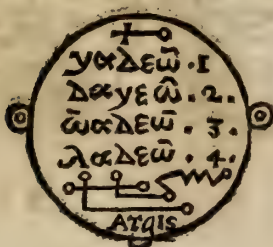 γαΔεῶ.1
Δαγεῶ.2.
ῶαΔεῶ.3.
λαΔεῶ.4.
Arqis